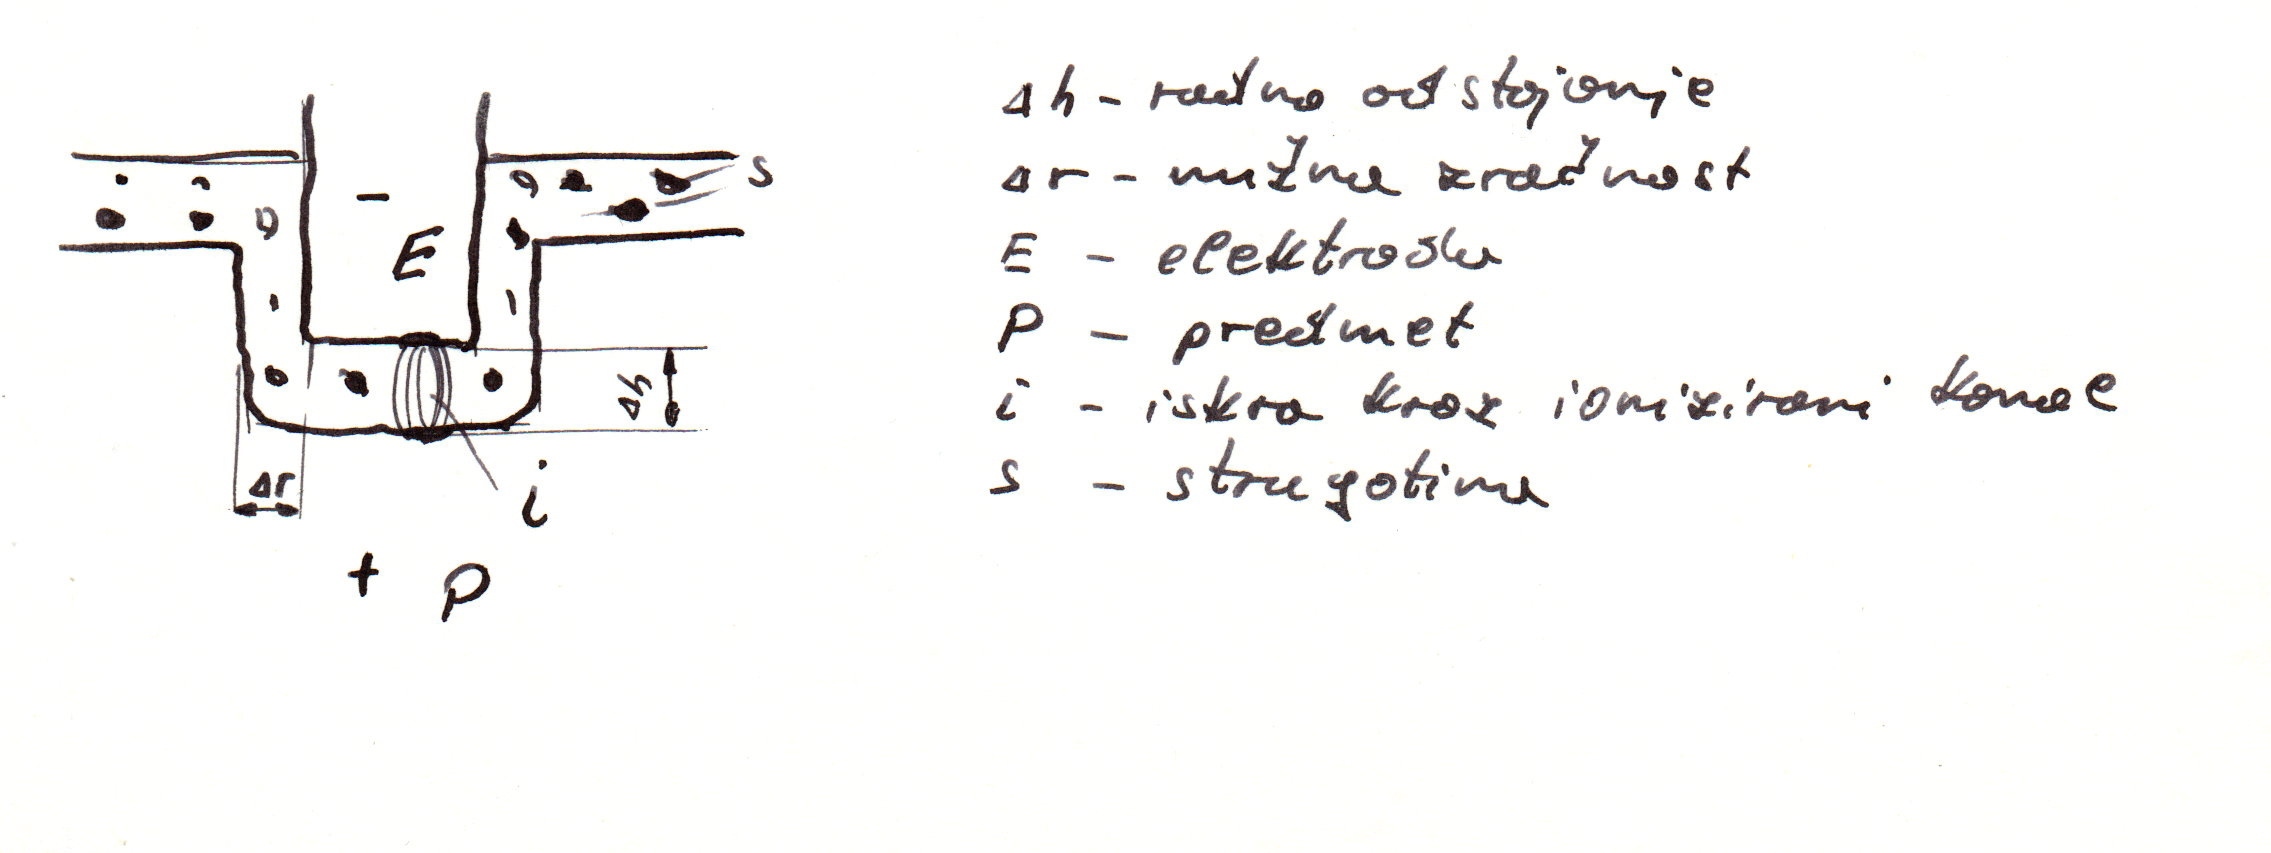 s
-
E
Δh
Δr
i
+ P
Δh - radno odstojanje
Δr - nužna zračnost
E - elektroda
P - predmet
i - iskra kroz ionizirani kanal
s - strugotina